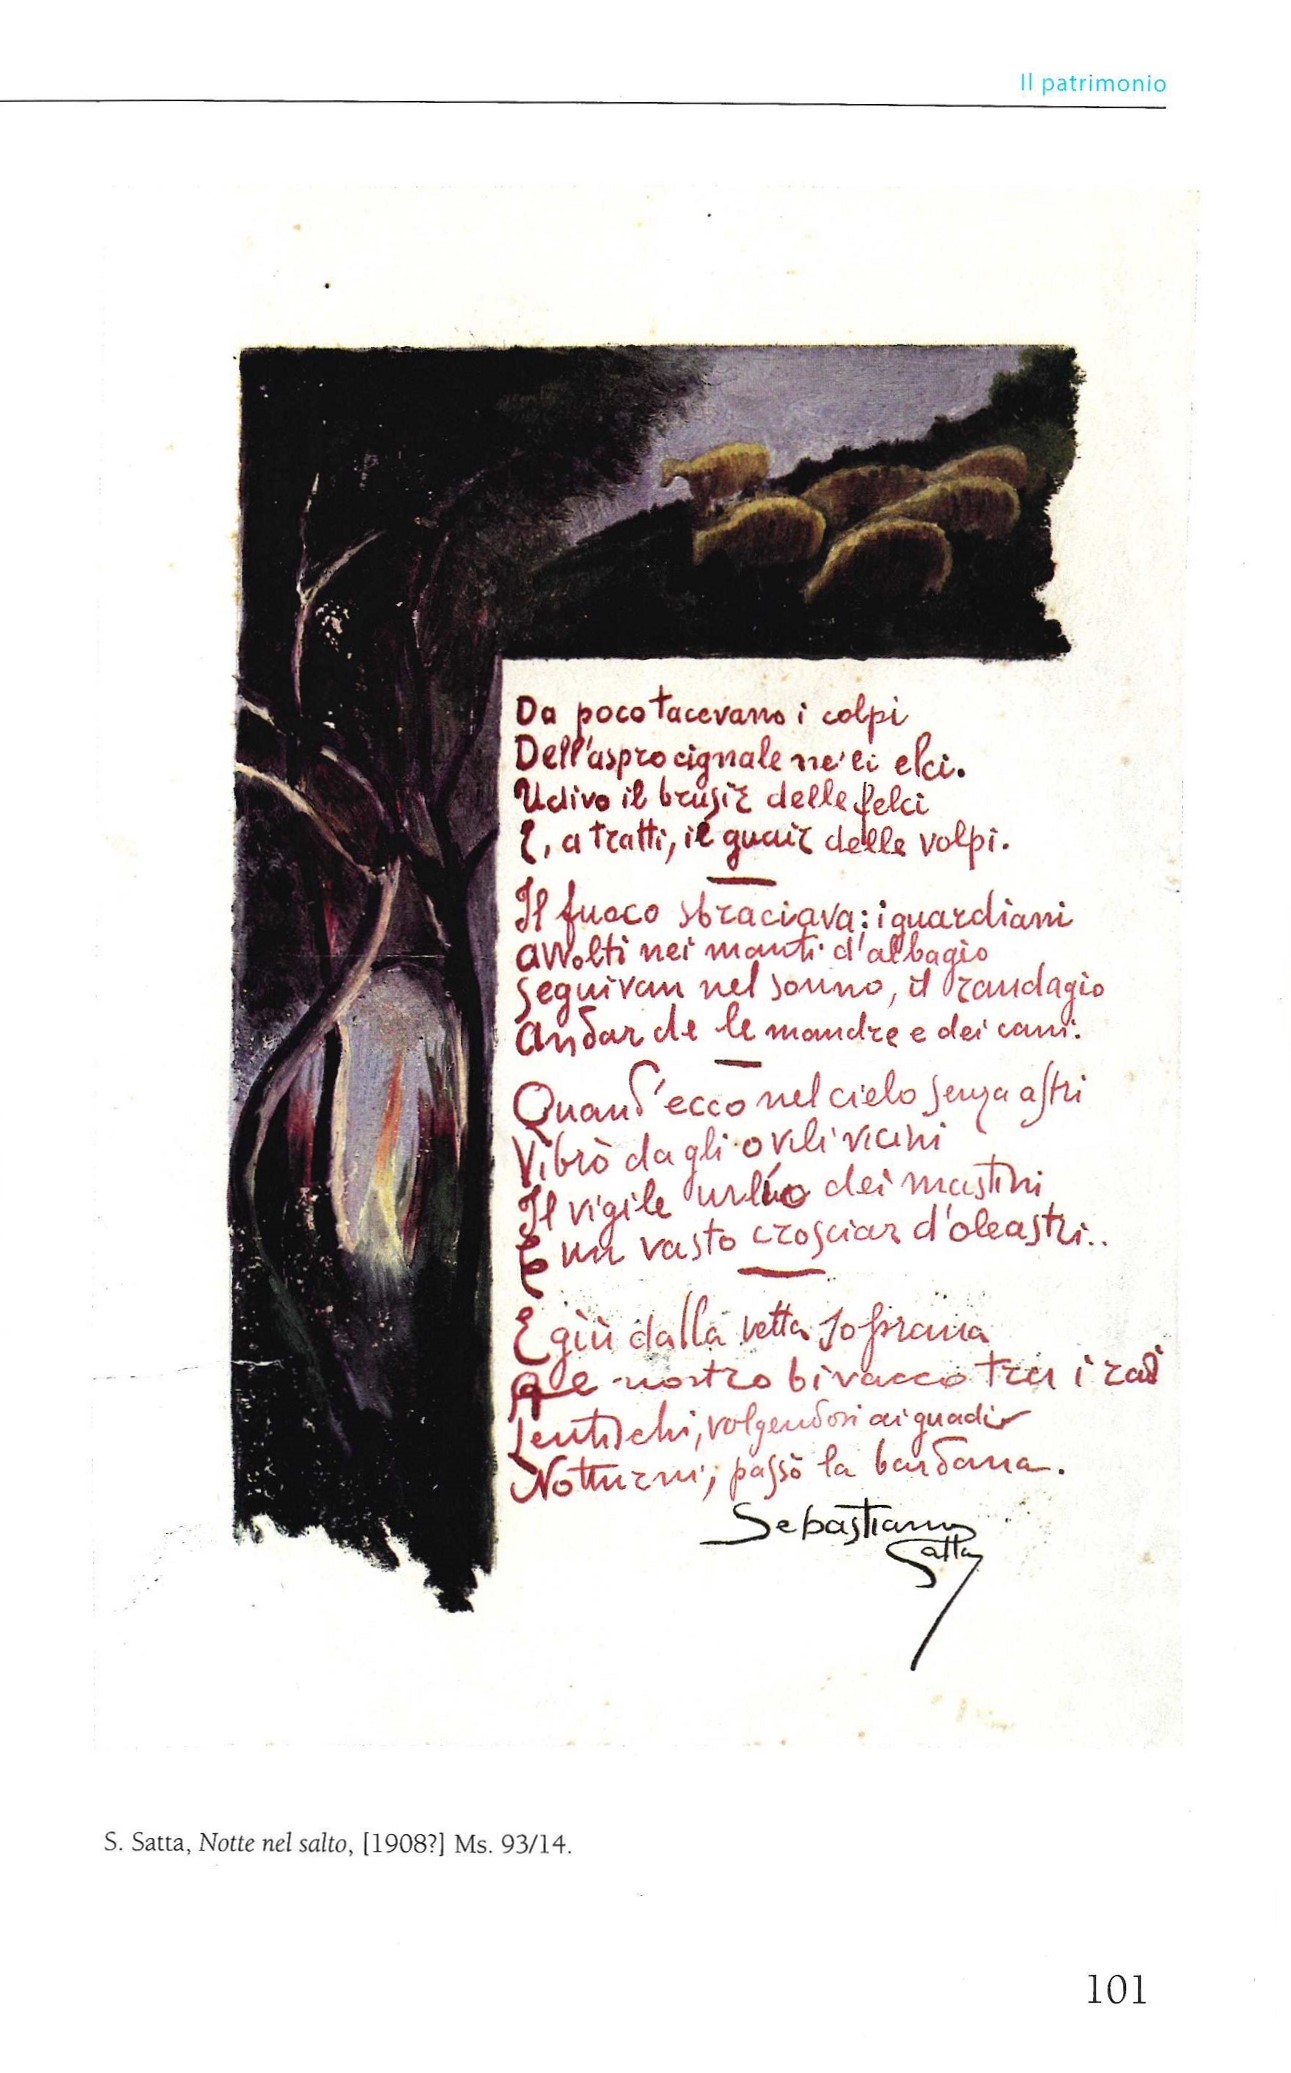 Il patrimonio
Da poco tacevano i colpi
Dell'aspro cignale ne' li elci.
Udivo il brusir delle felci
E, a tratti, il guair delle volpi.
Il fuoco sbraciava: i guardiani
avvolti nei manti d'albagio
seguivan nel sonno, il randagio
andar de le mandre e dei cani.
Quand'ecco nel cielo senza astri
Vibrò dagli ovili vicini
Il vigile urlío dei mastini
E un vasto crosciar d'oleastri..
E giù dalla vetta soprana
Al nostro bivacco tra i radi
lentischi, volgendosi ai guadi
Notturni, passò la bardana.
Sebastiano
Satta
S. Satta, Notte nel salto, [1908?] Ms. 93/14.
101